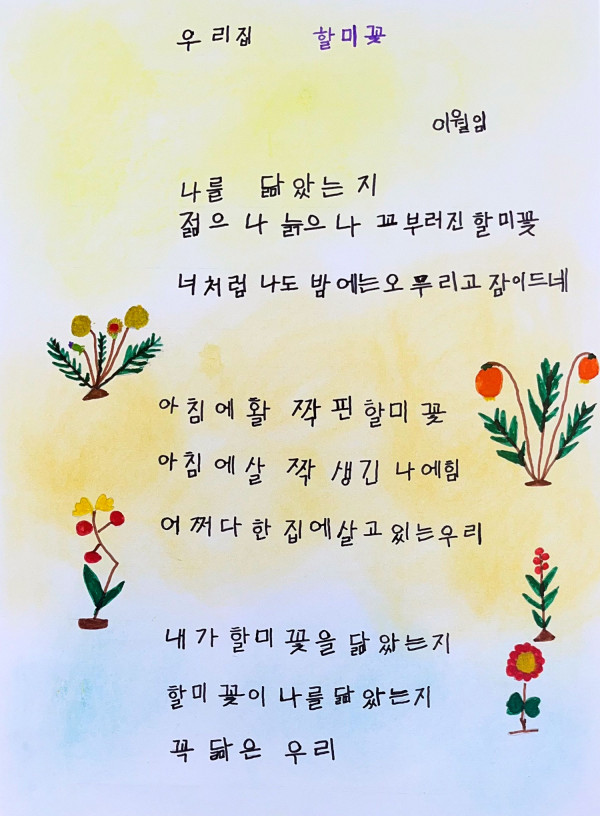 우리집 할미꽃
이월임
나를 닮았는지
젊으나 늙으나 꼬부러진 할미꽃
너처럼 나도 밤에는 오무리고 잠이드네
아침에 활짝 핀 할미꽃
아침에 살짝 생긴 나에힘
어쩌다 한 집에 살고 있는 우리
내가 할미꽃을 닮았는지
할미꽃이 나를 닮았는지
꼭 닮은 우리